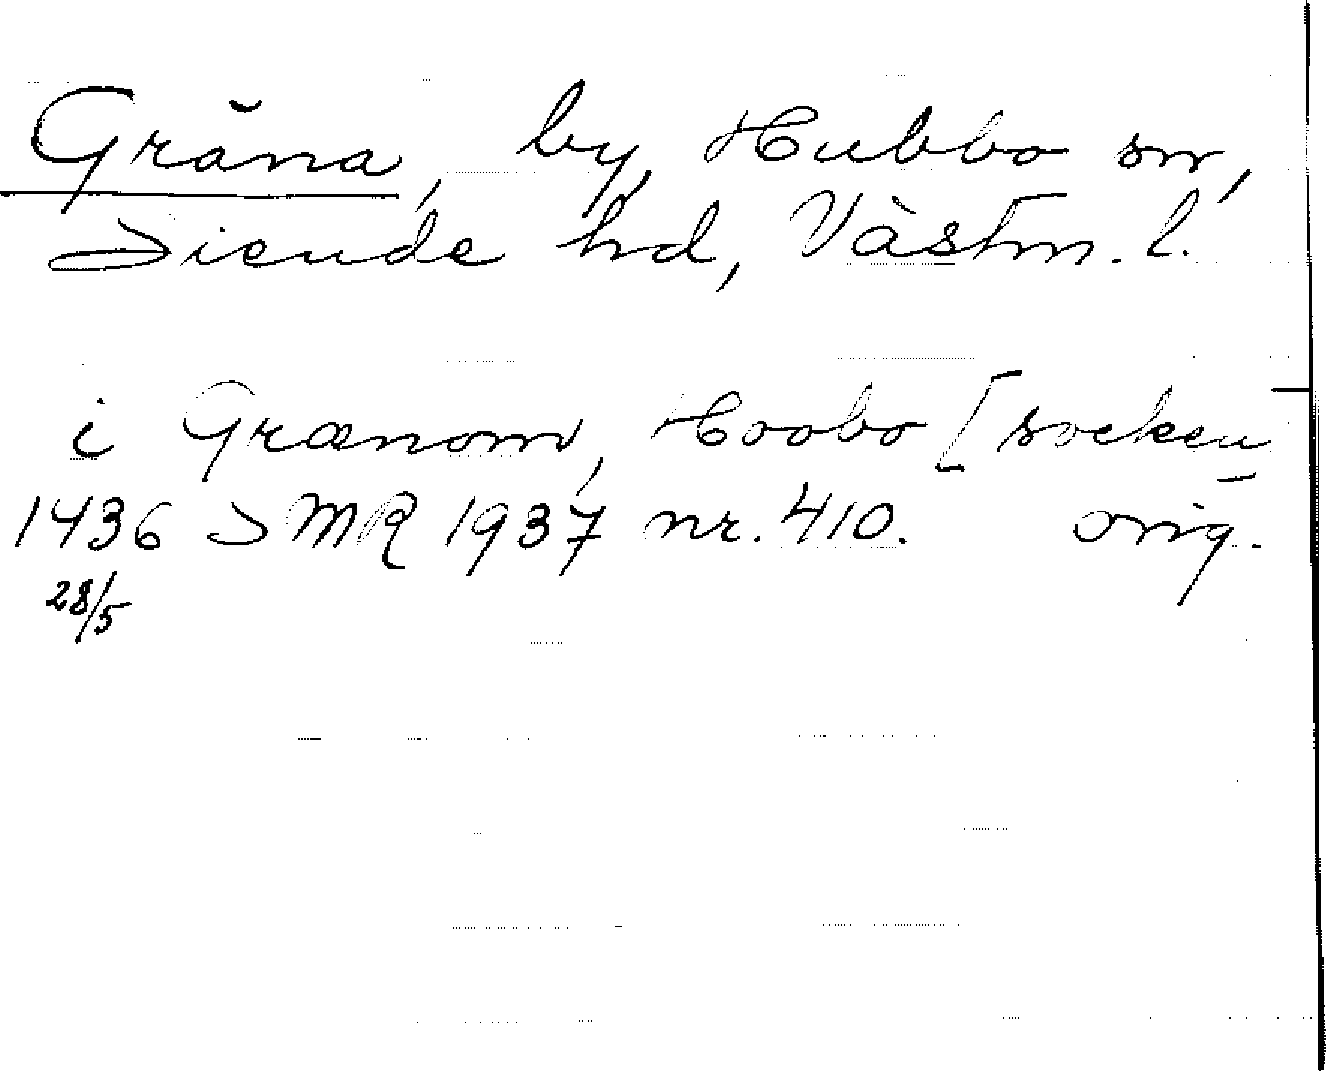 Gräna, by, Hubbo sn,
Siende hd, Västm. l.
i Grænom, Hoobo [socken
1436 SMR 1937 nr. 410. orig.
28/5